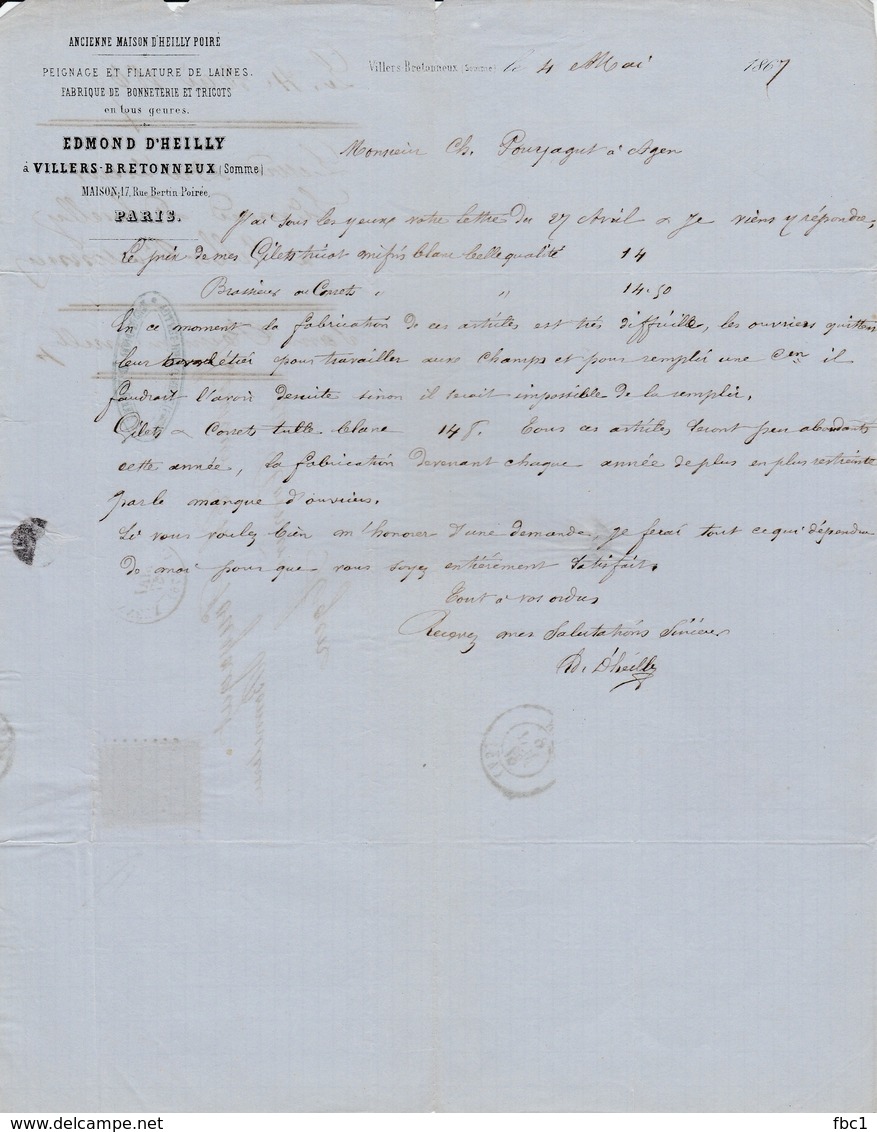 ANCIENNE MAISON D'HEILLY POIRÉ
PEIGNAGE ET FILATURE DE LAINES.
FABRIQUE DE BONNETERIE ET TRICOTS
en tous genres.
EDMOND D'HEILLY
à VILLERS-BRETONNEUX (Somme)
MAISON, 17, Rue Bertin Poirée,
PARIS.
Villers-Bretonneux (Somme) le 4 Mai 1867
Monsieur Ch. Pourjagut à Agen
J'ai sous les yeux votre lettre du 27 Avril & Je viens y répondre,
Le prix de mes Gilets tricot mifris blanc belle qualité 14
Brassières ou Corsets " " 14.50
En ce moment la fabrication de ces articles est très difficile, les ouvriers quittent
leur métier pour travailler aux champs et pour remplir une Cen il
faudrait l'avoir desuite sinon il serait impossible de la remplir.
Gilets & Corsets tulle blanc 14 f. Tous ces articles seront peu abondants
cette année, la fabrication devenant chaque année de plus en plus restreinte
par le manque d'ouvriers.
Si vous voulez bien m'honorer d'une demande, je ferai tout ce qui dépendra
de moi pour que vous soyez entièrement satisfait.
Tout à vos ordres
Recevez mes Salutations Sincères
D'heilly
fbc1